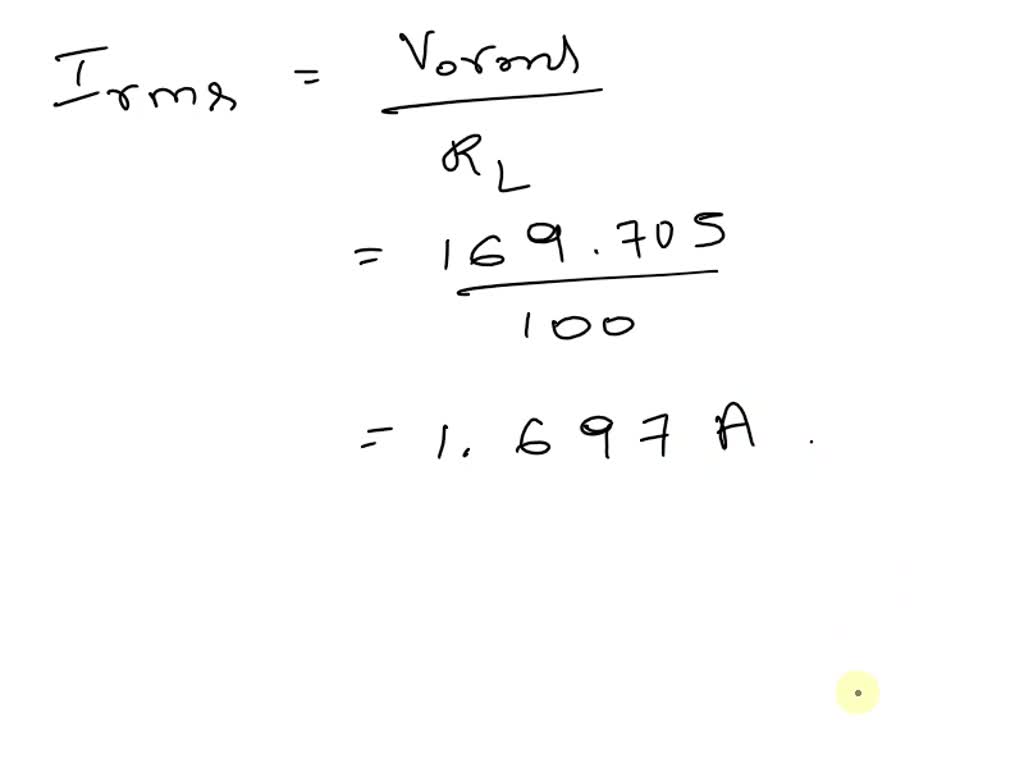 Irms = Vorms
RL
= 169.705
100
= 1.697 A.